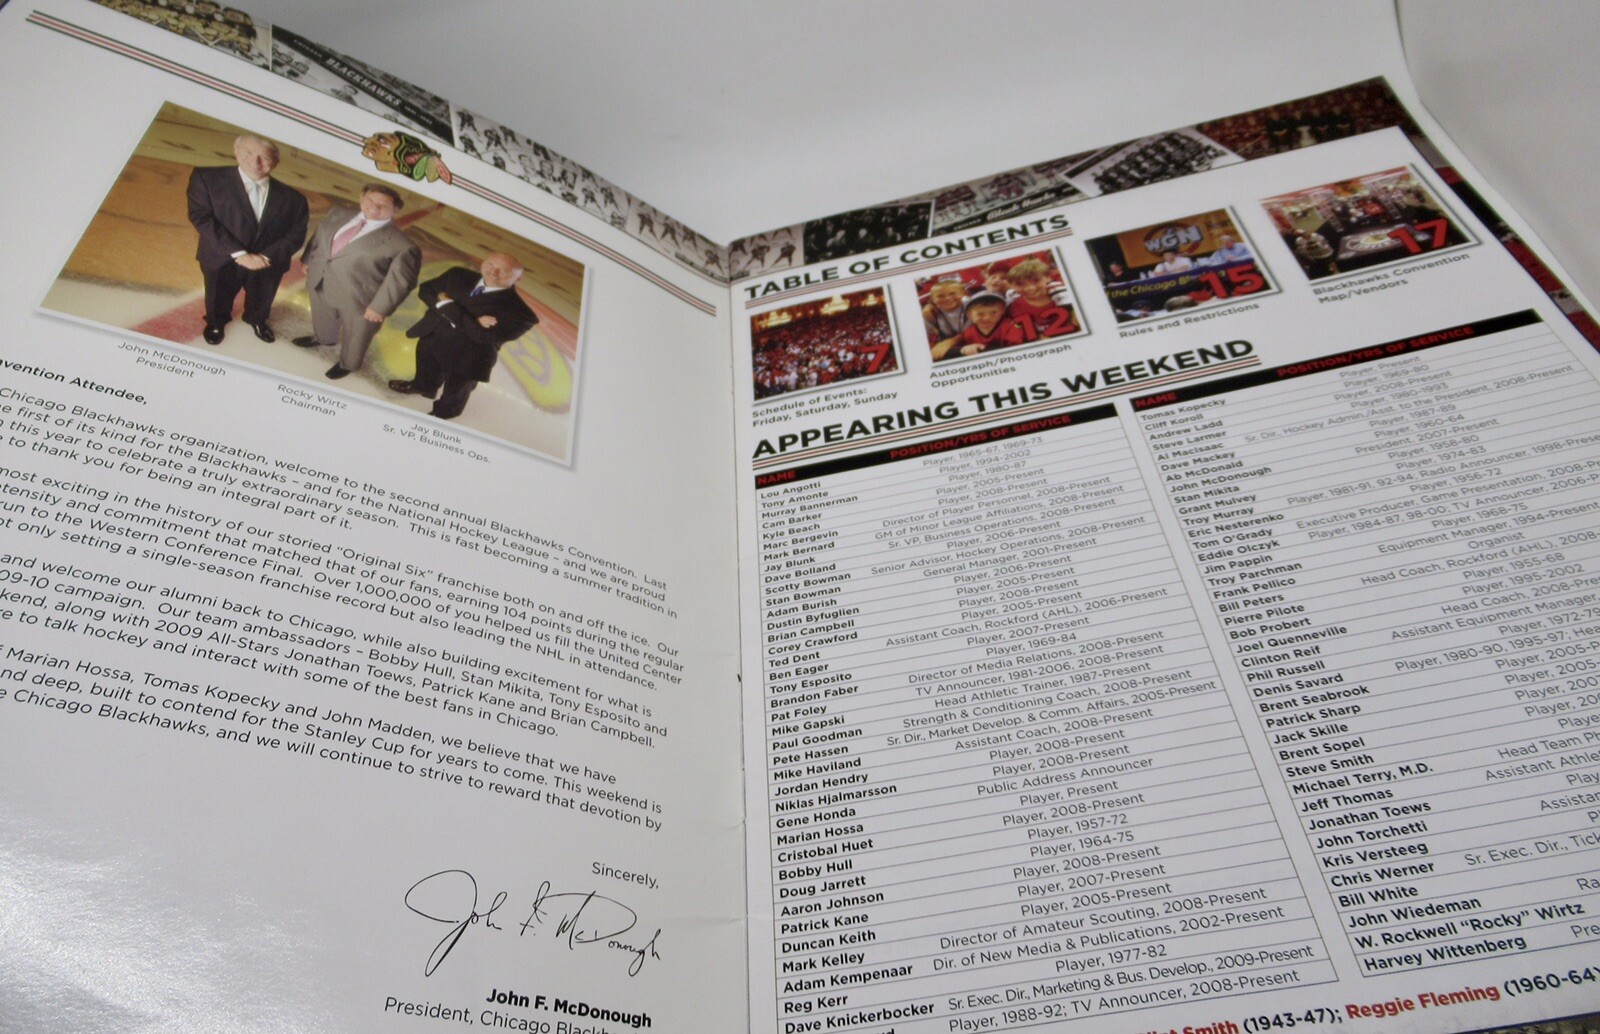 BLACKHAWKS
John McDonough
President
Rocky Wirtz
Chairman
Jay Blunk
Sr. VP, Business Ops.
vention Attendee,
Chicago Blackhawks organization, welcome to the second annual Blackhawks Convention. Last
e first of its kind for the Blackhawks – and for the National Hockey League – and we are proud
this year to celebrate a truly extraordinary season. This is fast becoming a summer tradition in
to thank you for being an integral part of it.
most exciting in the history of our storied "Original Six" franchise both on and off the ice. Our
ntensity and commitment that matched that of our fans, earning 104 points during the regular
run to the Western Conference Final. Over 1,000,000 of you helped us fill the United Center
ot only setting a single-season franchise record but also leading the NHL in attendance.
and welcome our alumni back to Chicago, while also building excitement for what is
09-10 campaign. Our team ambassadors – Bobby Hull, Stan Mikita, Tony Esposito and
kend, along with 2009 All-Stars Jonathan Toews, Patrick Kane and Brian Campbell.
re to talk hockey and interact with some of the best fans in Chicago.
f Marian Hossa, Tomas Kopecky and John Madden, we believe that we have
nd deep, built to contend for the Stanley Cup for years to come. This weekend is
e Chicago Blackhawks, and we will continue to strive to reward that devotion by
Sincerely,
John F. McDonough
John F. McDonough
President, Chicago Blackh
TABLE OF CONTENTS
7
Schedule of Events:
Friday, Saturday, Sunday
12
Autograph/Photograph
Opportunities
WGN
the Chicago Bl
15
Rules and Restrictions
17
Blackhawks Convention
Map/Vendors
APPEARING THIS WEEKEND
NAME POSITION/YRS OF SERVICE
Lou Angotti Player, 1965-67, 1969-73
Tony Amonte Player, 1994-2002
Murray Bannerman Player, 1980-87
Cam Barker Player, 2005-Present
Kyle Beach Player, 2008-Present
Marc Bergevin Director of Player Personnel, 2008-Present
Mark Bernard GM of Minor League Affiliations, 2008-Present
Jay Blunk Sr. VP, Business Operations, 2008-Present
Dave Bolland Player, 2006-Present
Scotty Bowman Senior Advisor, Hockey Operations, 2008-Present
Stan Bowman General Manager, 2001-Present
Adam Burish Player, 2006-Present
Dustin Byfuglien Player, 2005-Present
Brian Campbell Player, 2008-Present
Corey Crawford Player, 2005-Present
Ted Dent Assistant Coach, Rockford (AHL), 2006-Present
Ben Eager Player, 2007-Present
Tony Esposito Player, 1969-84
Brandon Faber Director of Media Relations, 2008-Present
Pat Foley TV Announcer, 1981-2006, 2008-Present
Mike Gapski Head Athletic Trainer, 1987-Present
Paul Goodman Strength & Conditioning Coach, 2008-Present
Pete Hassen Sr. Dir., Market Develop. & Comm. Affairs, 2005-Present
Mike Haviland Assistant Coach, 2008-Present
Jordan Hendry Player, 2008-Present
Niklas Hjalmarsson Player, 2008-Present
Gene Honda Public Address Announcer
Marian Hossa Player, Present
Cristobal Huet Player, 2008-Present
Bobby Hull Player, 1957-72
Doug Jarrett Player, 1964-75
Aaron Johnson Player, 2008-Present
Patrick Kane Player, 2007-Present
Duncan Keith Player, 2005-Present
Mark Kelley Director of Amateur Scouting, 2008-Present
Adam Kempenaar Dir. of New Media & Publications, 2002-Present
Reg Kerr Player, 1977-82
Dave Knickerbocker Sr. Exec. Dir., Marketing & Bus. Develop., 2009-Present
Player, 1988-92; TV Announcer, 2008-Present
NAME POSITION/YRS OF SERVICE
Tomas Kopecky Player, Present
Cliff Koroll Player, 1969-80
Andrew Ladd Player, 2008-Present
Steve Larmer Player, 1980-1993
Al MacIsaac Sr. Dir, Hockey Admin./Asst. to the President, 2008-Present
Dave Mackey Player, 1987-89
Ab McDonald Player, 1960-64
John McDonough President, 2007-Present
Stan Mikita Player, 1958-80
Grant Mulvey Player, 1974-83
Troy Murray Player, 1981-91, 92-94, Radio Announcer, 1998-Presen
Eric Nesterenko Player, 1956-72
Tom O'Grady Executive Producer, Game Presentation, 2008-P
Eddie Olczyk Player, 1984-87, 98-00; TV Announcer, 2006-P
Jim Pappin Player, 1968-75
Troy Parchman Equipment Manager, 1994-Present
Frank Pellico Organist
Bill Peters Head Coach, Rockford (AHL), 2008-
Pierre Pilote Player, 1955-68
Bob Probert Player, 1995-2002
Joel Quenneville Head Coach, 2008-P
Clinton Reif Assistant Equipment Manager,
Phil Russell Player, 1972-79
Denis Savard Player, 1980-90, 1995-97; Hea
Brent Seabrook Player, 2005-P
Patrick Sharp Player, 2005-
Jack Skille Player, 2007
Brent Sopel Player, 20
Steve Smith Player
Michael Terry, M.D. Head Team Ph
Jeff Thomas Assistant Athle
Jonathan Toews Play
John Torchetti Assistan
Kris Versteeg P
Chris Werner Sr. Exec. Dir., Tick
Bill White
John Wiedeman Ra
W. Rockwell "Rocky" Wirtz
Harvey Wittenberg Pre
Smith (1943-47); Reggie Fleming (1960-64)